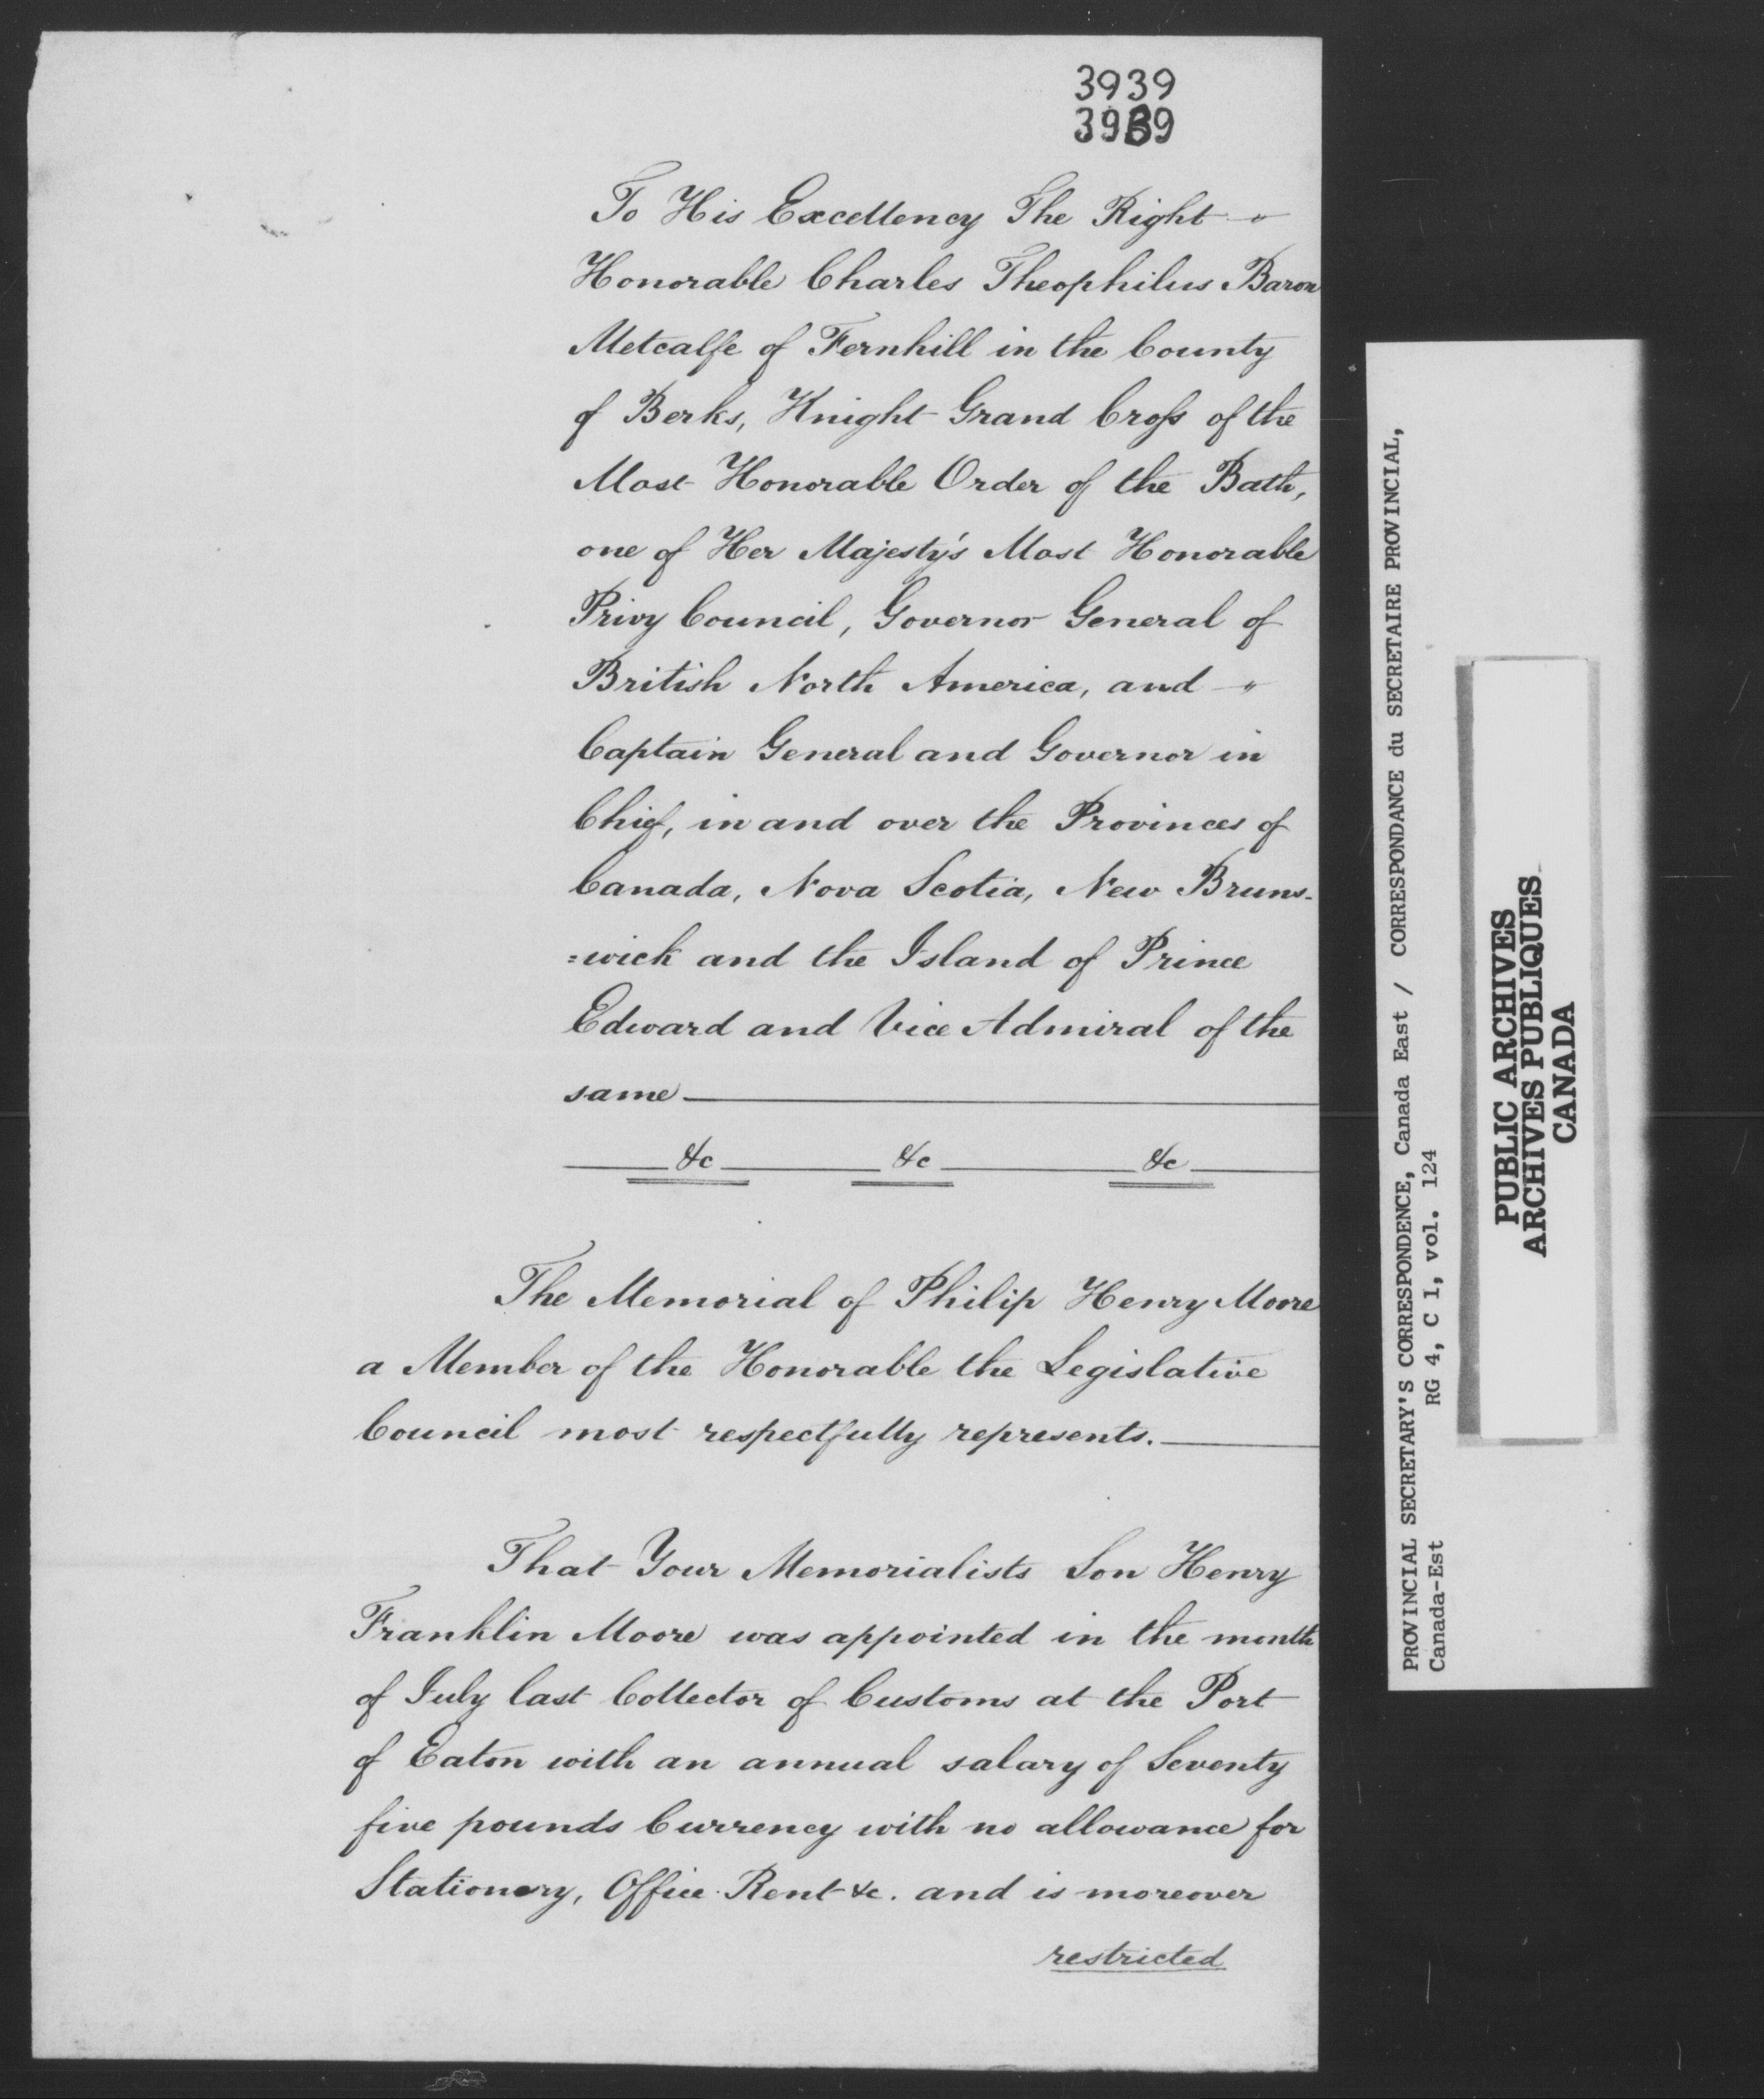 3939
3939
To His Excellency The Right "
Honorable Charles Theophilus Baron
Metcalfe of Fernhill in the County
of Berks, Knight Grand Cross of the
Most Honorable Order of the Bath,
one of Her Majesty's Most Honorable
Privy Council, Governor General of
British North America, and "
Captain General and Governor in
Chief, in and over the Provinces of
Canada, Nova Scotia, New Bruns-
=wick and the Island of Prince
Edward and Vice Admiral of the
same
&c &c &c
The Memorial of Philip Henry Moore
a Member of the Honorable the Legislative
Council most respectfully represents.
That Your Memorialists Son Henry
Franklin Moore was appointed in the month
of July last Collector of Customs at the Port
of Eaton with an annual salary of Seventy
five pounds Currency with no allowance for
Stationery, Office Rent &c. and is moreover
restricted
PROVINCIAL SECRETARY'S CORRESPONDENCE, Canada East / CORRESPONDANCE du SECRETAIRE PROVINCIAL,
Canada-Est RG 4, C 1, vol. 124
PUBLIC ARCHIVES
ARCHIVES PUBLIQUES
CANADA